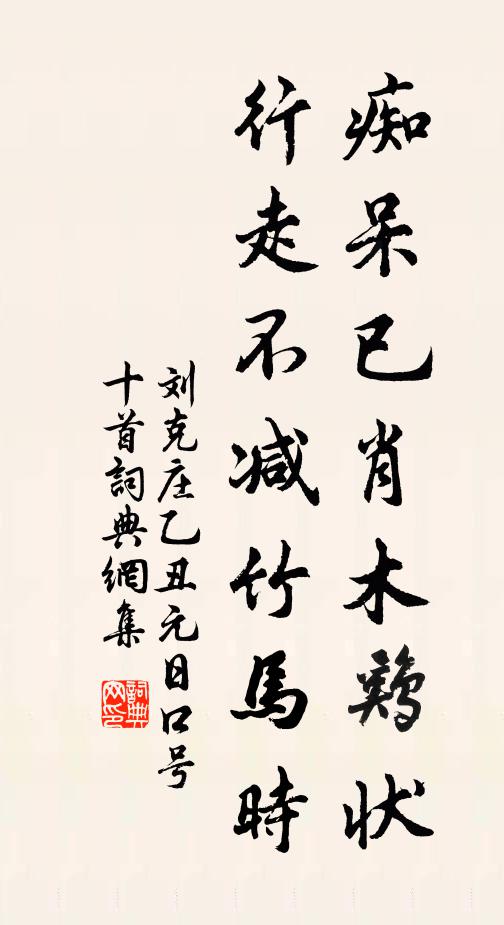 痴呆已肖木鷄状
行走不减竹馬時
刘克庄乙丑元日口号
十首詞典網集
詞典网印